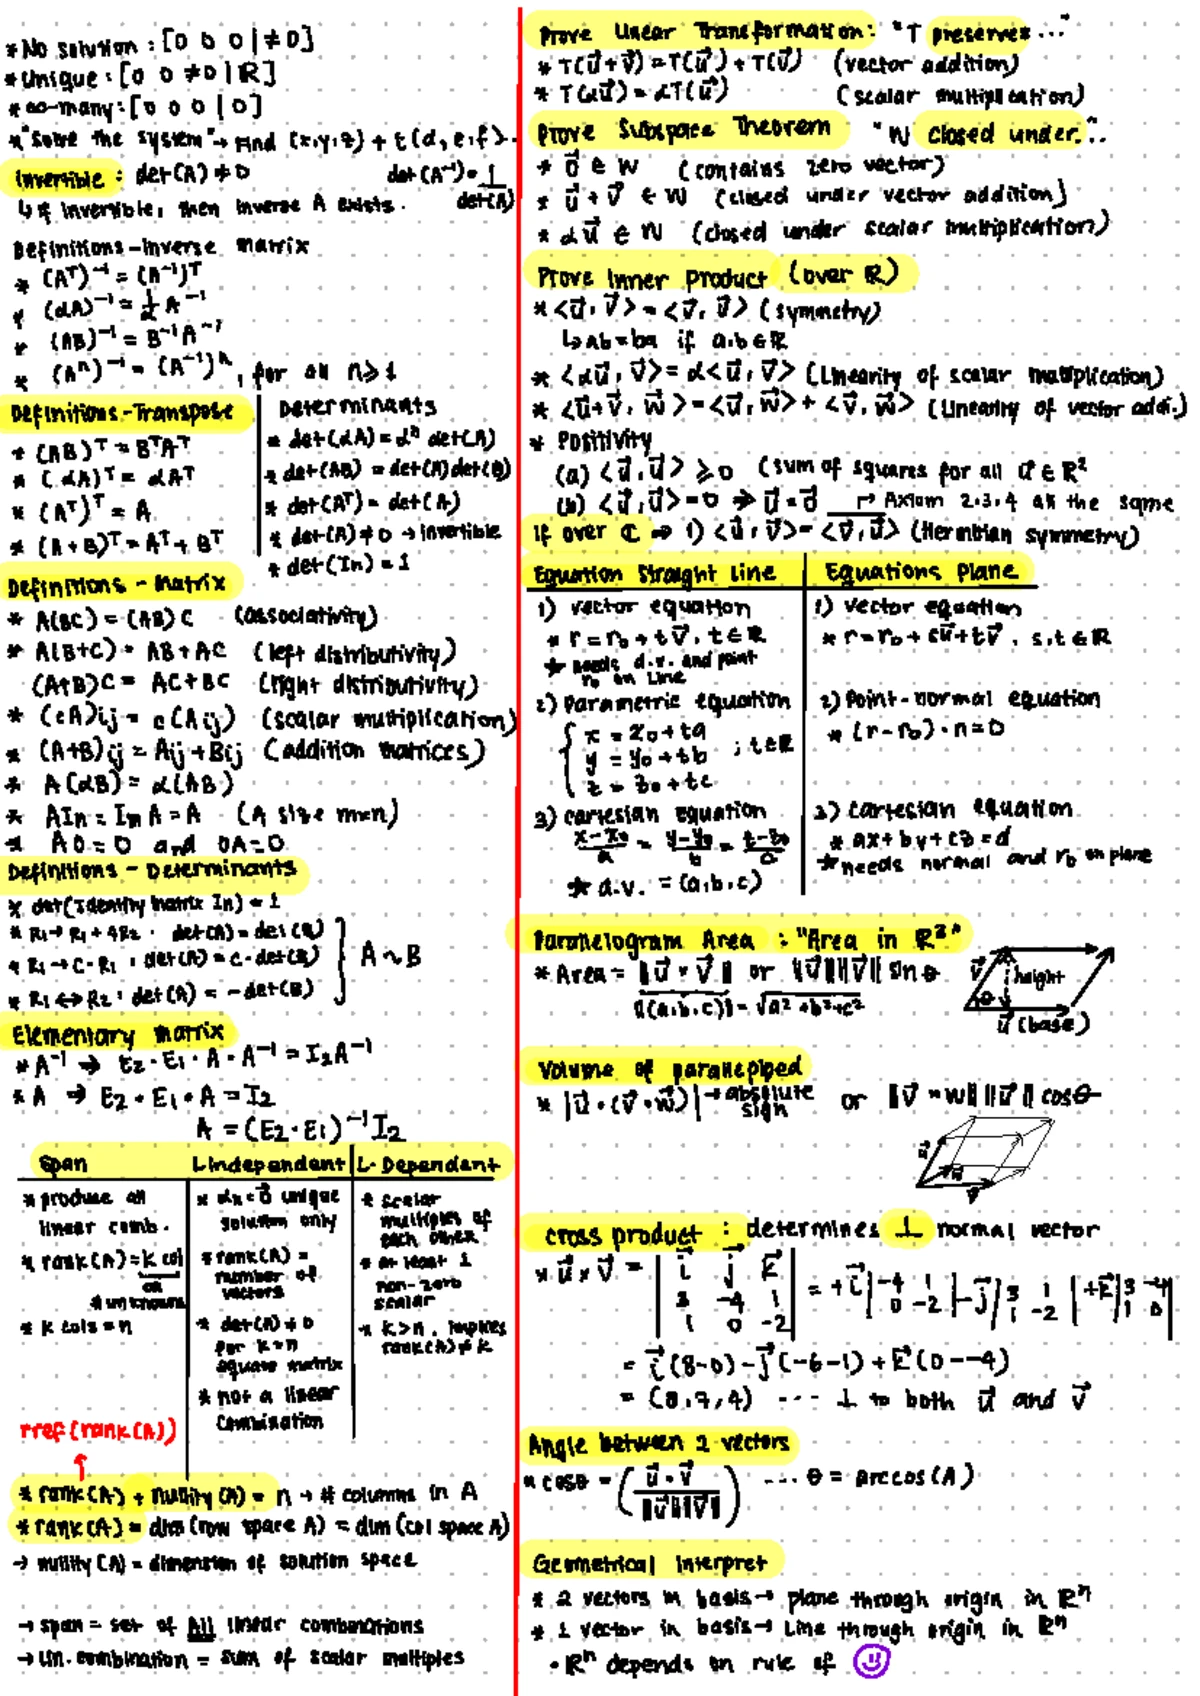 * No solution : [0 0 0 | ≠0]
* Unique : [0 0 ≠0 | ℝ]
* ∞-many : [0 0 0 | 0]
* "Solve the system" → Find (x,y,z) + t(d,e,f).
Invertible : det(A) ≠ 0 det(A⁻¹) = 1/det(A)
↳ if invertible, then inverse A exists.
Definitions - Inverse matrix
* (Aᵀ)⁻¹ = (A⁻¹)ᵀ
* (αA)⁻¹ = 1/α A⁻¹
* (AB)⁻¹ = B⁻¹A⁻¹
* (Aⁿ)⁻¹ = (A⁻¹)ⁿ, for all n ≥ 1
Definitions - Transpose
* (AB)ᵀ = BᵀAᵀ
* (αA)ᵀ = αAᵀ
* (Aᵀ)ᵀ = A
* (A+B)ᵀ = Aᵀ + Bᵀ
Determinants
* det(αA) = αⁿ det(A)
* det(AB) = det(A)det(B)
* det(Aᵀ) = det(A)
* det(A) ≠ 0 → invertible
* det(In) = 1
Definitions - Matrix
* A(BC) = (AB)C (associativity)
* A(B+C) = AB+AC (left distributivity)
(A+B)C = AC+BC (right distributivity)
* (cA)ij = c(Aij) (scalar multiplication)
* (A+B)ij = Aij + Bij (addition matrices)
* A(αB) = α(AB)
* AIn = ImA = A (A size m×n)
* A0 = 0 and 0A = 0
Definitions - Determinants
* det(Identity matrix In) = 1
* R₁ → R₁ + 4R₂ . det(A) = det(B)
* R₁ → c·R₁ : det(A) = c·det(B) } A ~ B
* R₁ ↔ R₂ : det(A) = -det(B)
Elementary matrix
* A⁻¹ ⇒ E₂·E₁·A·A⁻¹ = I₂A⁻¹
* A ⇒ E₂·E₁·A = I₂
A = (E₂·E₁)⁻¹I₂
Span
* produce all
linear comb.
* rank(A) = k col
or
# unknowns
* k cols = n
L.independent
* αn = 0⃗ unique
solution only
* rank(A) =
number of
vectors
* det(A) ≠ 0
for k = n
square matrix
* not a linear
combination
L. Dependent
* scalar
multiples of
each other
* at least 1
non-zero
scalar
* k > n. implies
rank(A) ≠ k
rref(rank(A))
* rank(A) + nullity(A) = n → # columns in A
* rank(A) = dim(row space A) = dim(col space A)
→ nullity(A) = dimension of solution space
→ span = set of All linear combinations
→ lin. combination = sum of scalar multiples
Prove Linear Transformation: "T preserves..."
* T(u⃗+v⃗) = T(u⃗) + T(v⃗) (vector addition)
* T(αu⃗) = αT(u⃗) (scalar multiplication)
Prove Subspace Theorem "W closed under."..
* 0⃗ ∈ W (contains zero vector)
* u⃗ + v⃗ ∈ W (closed under vector addition)
* αu⃗ ∈ W (closed under scalar multiplication)
Prove Inner Product (over ℝ)
* <u⃗, v⃗> = <v⃗, u⃗> (symmetry)
↳ ab = ba if a,b ∈ ℝ
* <αu⃗, v⃗> = α<u⃗, v⃗> (Linearity of scalar multiplication)
* <u⃗+v⃗, w⃗> = <u⃗, w⃗> + <v⃗, w⃗> (Linearity of vector addi.)
* Positivity
(a) <u⃗, u⃗> ≥ 0 (sum of squares for all u⃗ ∈ ℝ²
(b) <u⃗, u⃗> = 0 ⇒ u⃗ = 0⃗ → Axiom 2.3.4 all the same
If over ℂ ⇒ 1) <u⃗, v⃗> = <v⃗, u⃗> (Hermitian symmetry)
Equation Straight Line
1) vector equation
* r = r₀ + tv⃗, t ∈ ℝ
* needs d.v. and point
r₀ on line
2) Parametric equation
{ x = x₀ + ta
y = y₀ + tb ; t ∈ ℝ
z = z₀ + tc
3) Cartesian equation
x-x₀/a = y-y₀/b = z-z₀/c
* d.v. = (a,b,c)
Equations Plane
1) vector equation
* r = r₀ + su⃗ + tv⃗, s,t ∈ ℝ
2) Point-normal equation
* (r-r₀)·n = 0
3) Cartesian equation
* ax + by + cz = d
* needs normal and r₀ on plane
Parallelogram Area : "Area in ℝ³"
* Area = ‖u⃗ × v⃗‖ or ‖u⃗‖‖v⃗‖ sinθ
‖(a,b,c)‖ = √a²+b²+c²
v⃗ θ height
u⃗ (base)
Volume of parallepiped
* |u⃗·(v⃗×w⃗)| → absolute sign or ‖v⃗×w‖ ‖u⃗‖ cosθ
u⃗ w⃗ v⃗
Cross product : determines ⊥ normal vector
* u⃗ × v⃗ = | i⃗ j⃗ k⃗ | = +i⃗ |-4 1| - j⃗ |3 1| + k⃗ |3 -4|
| 3 -4 1 | |0 -2| |1 -2| |1 0|
| 1 0 -2 |
= i⃗(8-0) - j⃗(-6-1) + k⃗(0--4)
= (8,7,4) ... ⊥ to both u⃗ and v⃗
Angle between 2 vectors
* cosθ = (u⃗·v⃗/‖u⃗‖‖v⃗‖) ... θ = arccos(A)
Geometrical Interpret
* 2 vectors in basis → plane through origin in ℝⁿ
* 1 vector in basis → Line through origin in ℝⁿ
• ℝⁿ depends on rule of